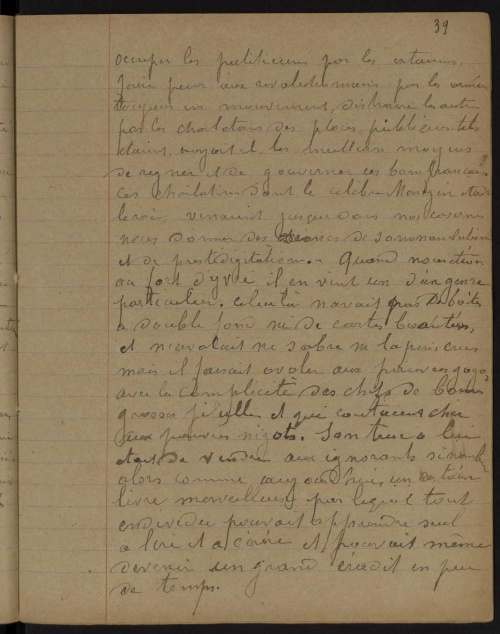 39
occuper les politiciens par les
faire peur aux revolutionnaires par les armées
toujours en mouvement, distraire les autres
par les charlatans des places publiques tels
étaient, croyait il, les meilleurs moyens
de regner et de gouverner ces bons francais.
Ces charlatans dont le celebre Mangin était
le roi, venaient jusque dans nos casernes
nous donner des seances de somnanbulisme
et de prestidigitation. Quand nous étions
au fort d'yvre il en vint un d'un genre
particulier. Celui là n'avait pas de boites
à double fond ni de cartes
et n'avalait ne sabre ni
mais il faisait avaler aux pauvres gogos
avec la complicité des chefs de bonnes
grosses et qui coutaient cher
aux pauvres nigots. Son truc a lui
etait de vendre aux ignorants
alors comme aujourd'huis, un certain
livre merveilleux par lequel tout
endividu pouvait apprendre seul
a lire et a ecrire et pouvait même
devenir un grand érudit en peu
de temps.